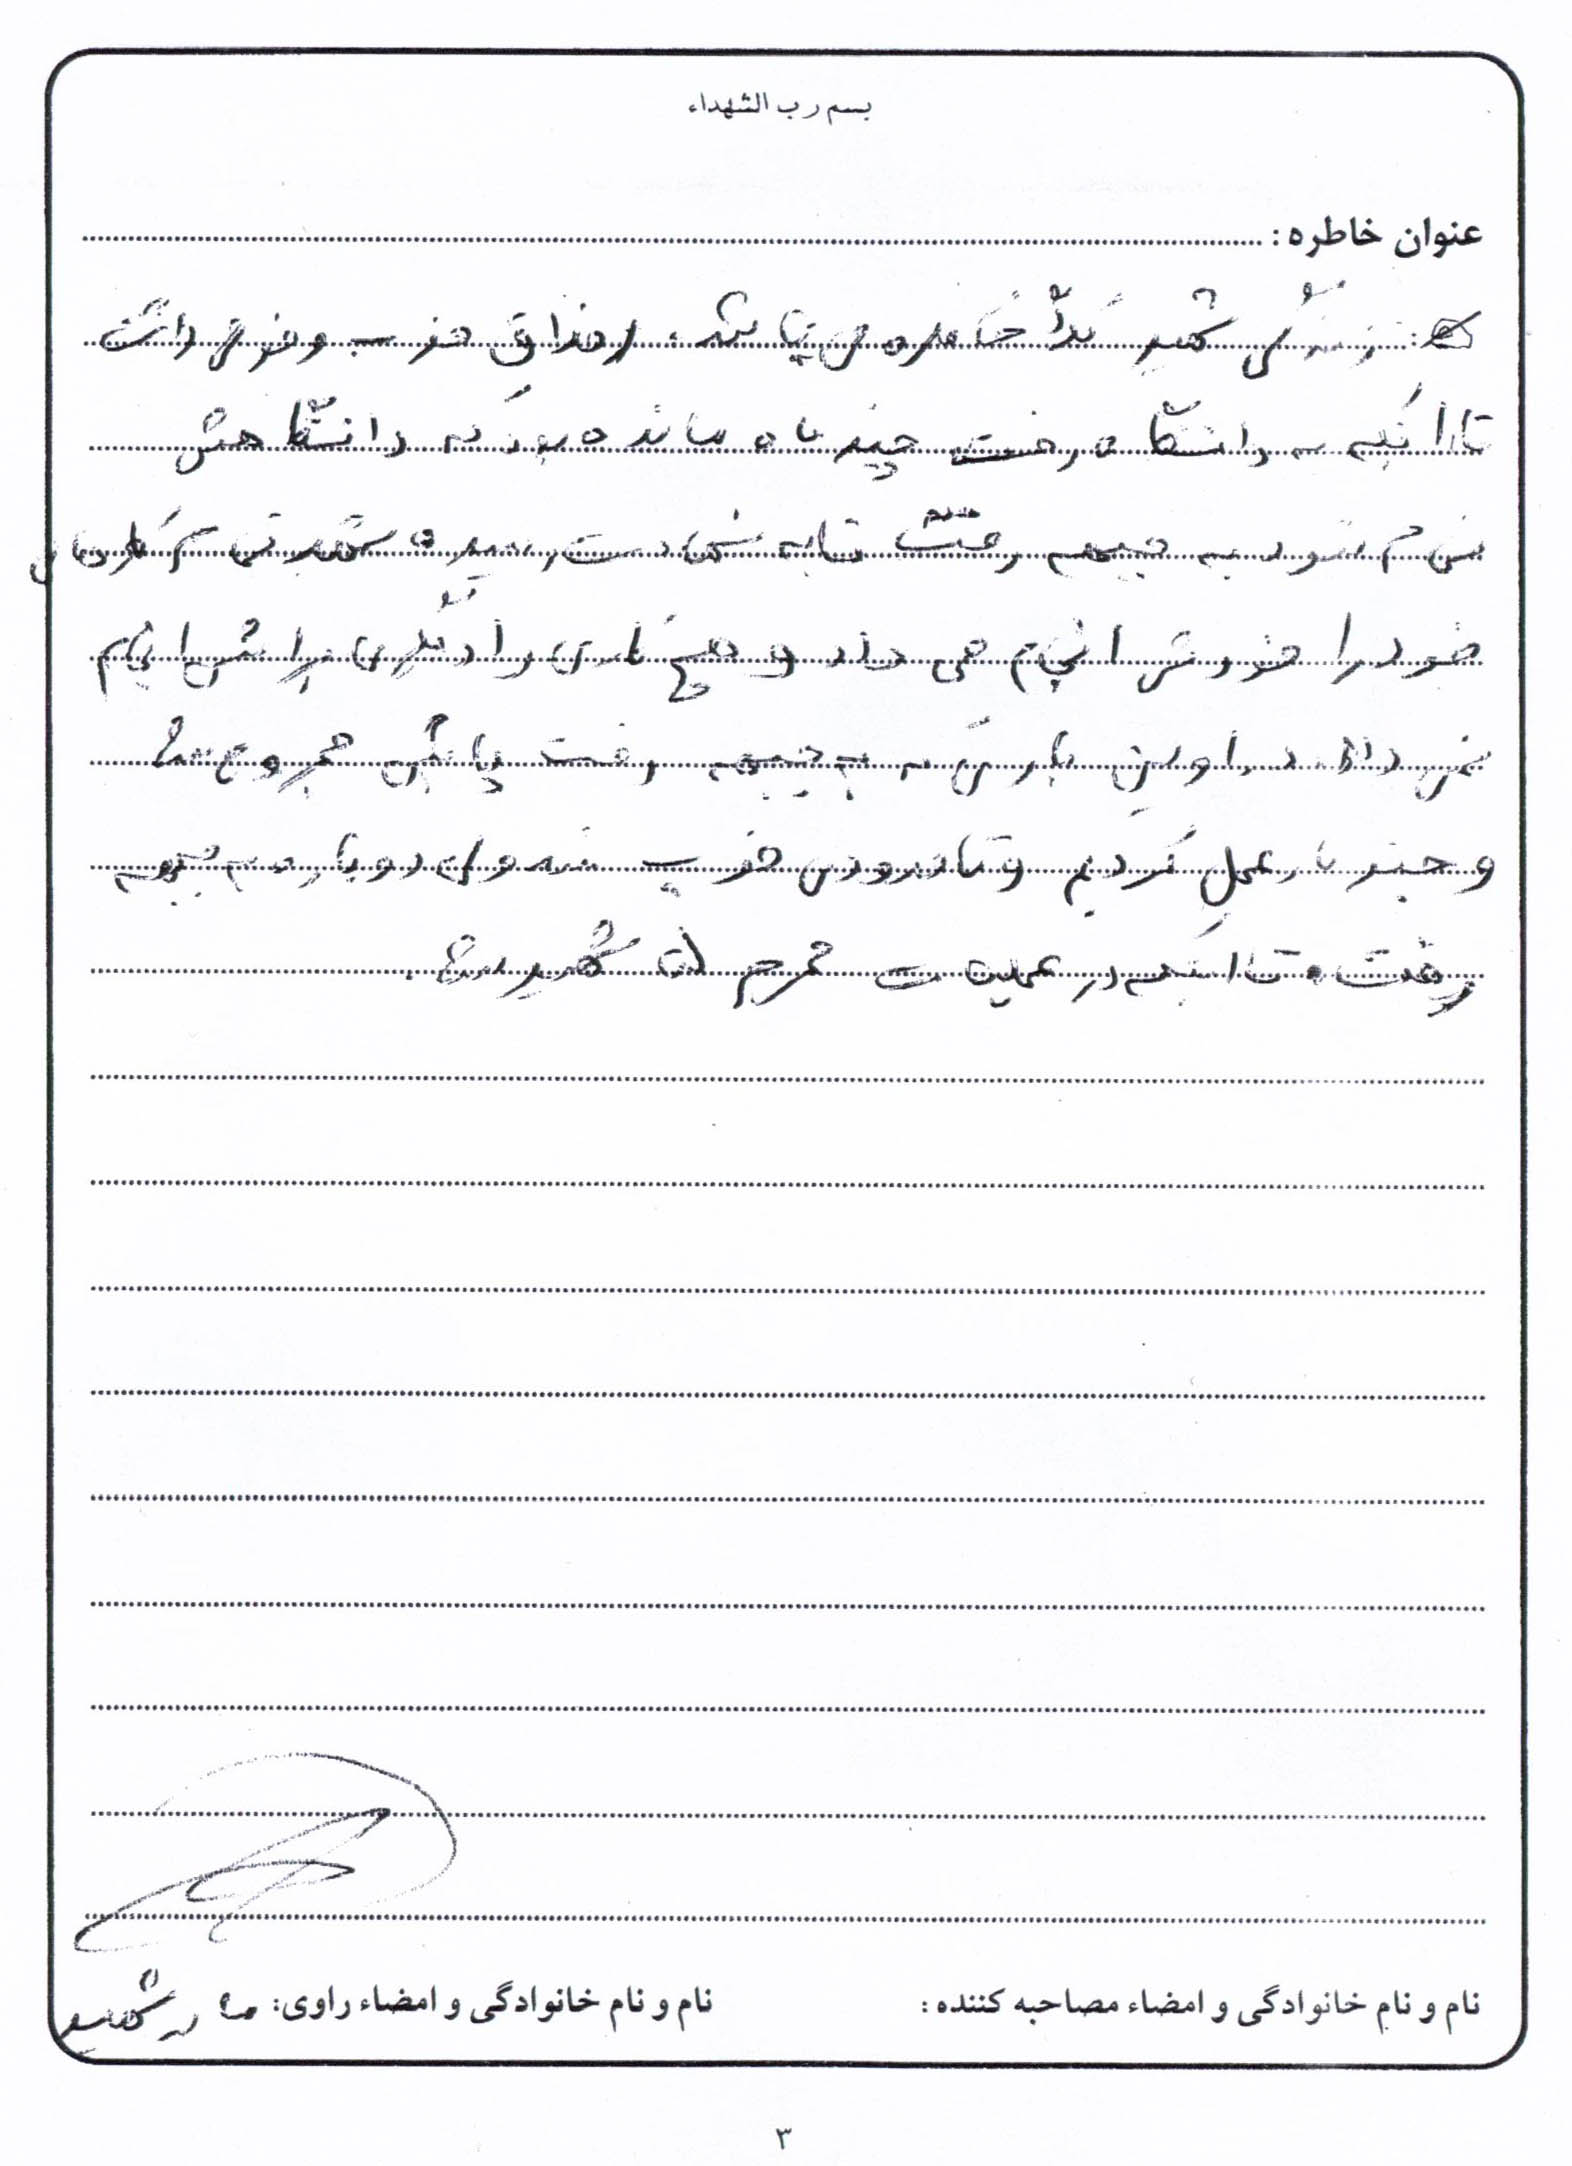 بسم رب الشهداء
عنوان خاطره :
زندگی شهید تماماً خاطره می باشد. اخلاق خوب و خوشی داشت
تا اینکه به دانشگاه رفت چند ماه مانده بود که دانشگاهش
تمام شود به جبهه رفت تا به شهادت رسید. شهید تمام کارهای
خود را خودش انجام می داد و هیچ کاری را دیگری برایش انجام
نمی داد. در اولین باری که به جبهه رفت پایش مجروح شد
و چند بار عمل کردیم و تا حدودی خوب شد ولی دوباره به جبهه
رفت تا اینکه در عملیات محرم شهید شد.
نام و نام خانوادگی و امضاء مصاحبه کننده :
نام و نام خانوادگی و امضاء راوی: مادر شهید
۳